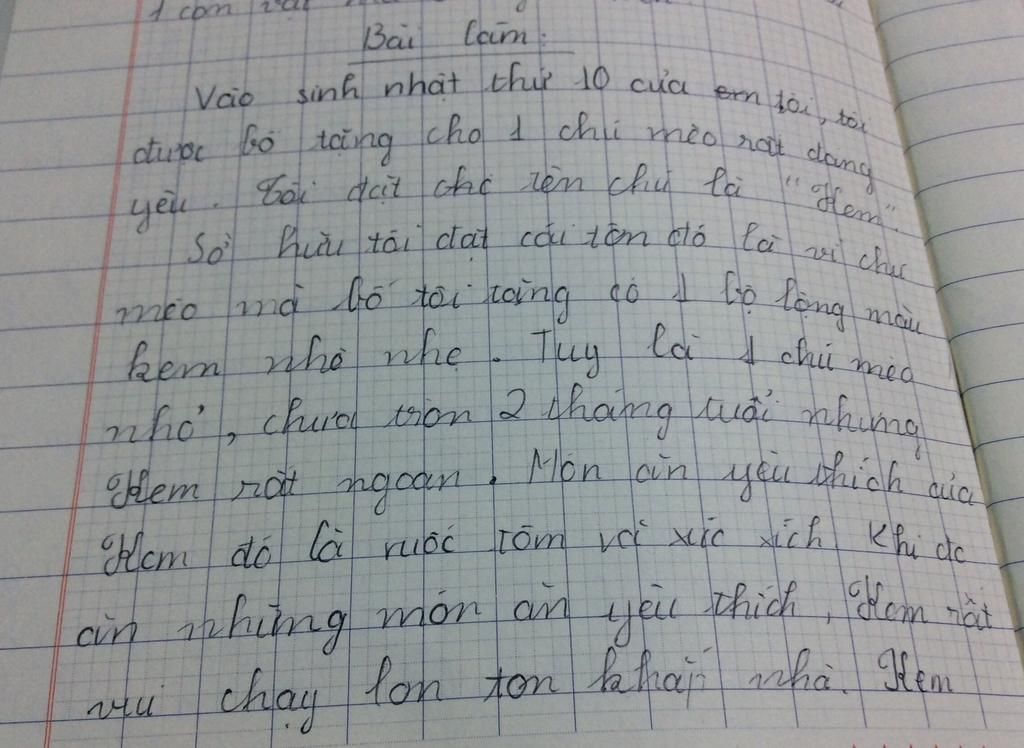 1 con
Bài làm:
Vào sinh nhật thứ 10 của em tôi, tôi
được bố tặng cho 1 chú mèo rất đáng
yêu. Tôi đặt cho tên chú là "Kem".
Sở hữu tôi đặt cái tên đó là vì chú
mèo mà bố tôi tặng có 1 bộ lông màu
kem nhè nhẹ. Tuy là 1 chú mèo
nhỏ, chưa tròn 2 tháng tuổi nhưng
Kem rất ngoan. Món ăn yêu thích của
Kem đó là ruốc tôm và xúc xích Khi đc
ăn những món ăn yêu thích, Kem rất
vui chạy lon ton khắp nhà. Kem